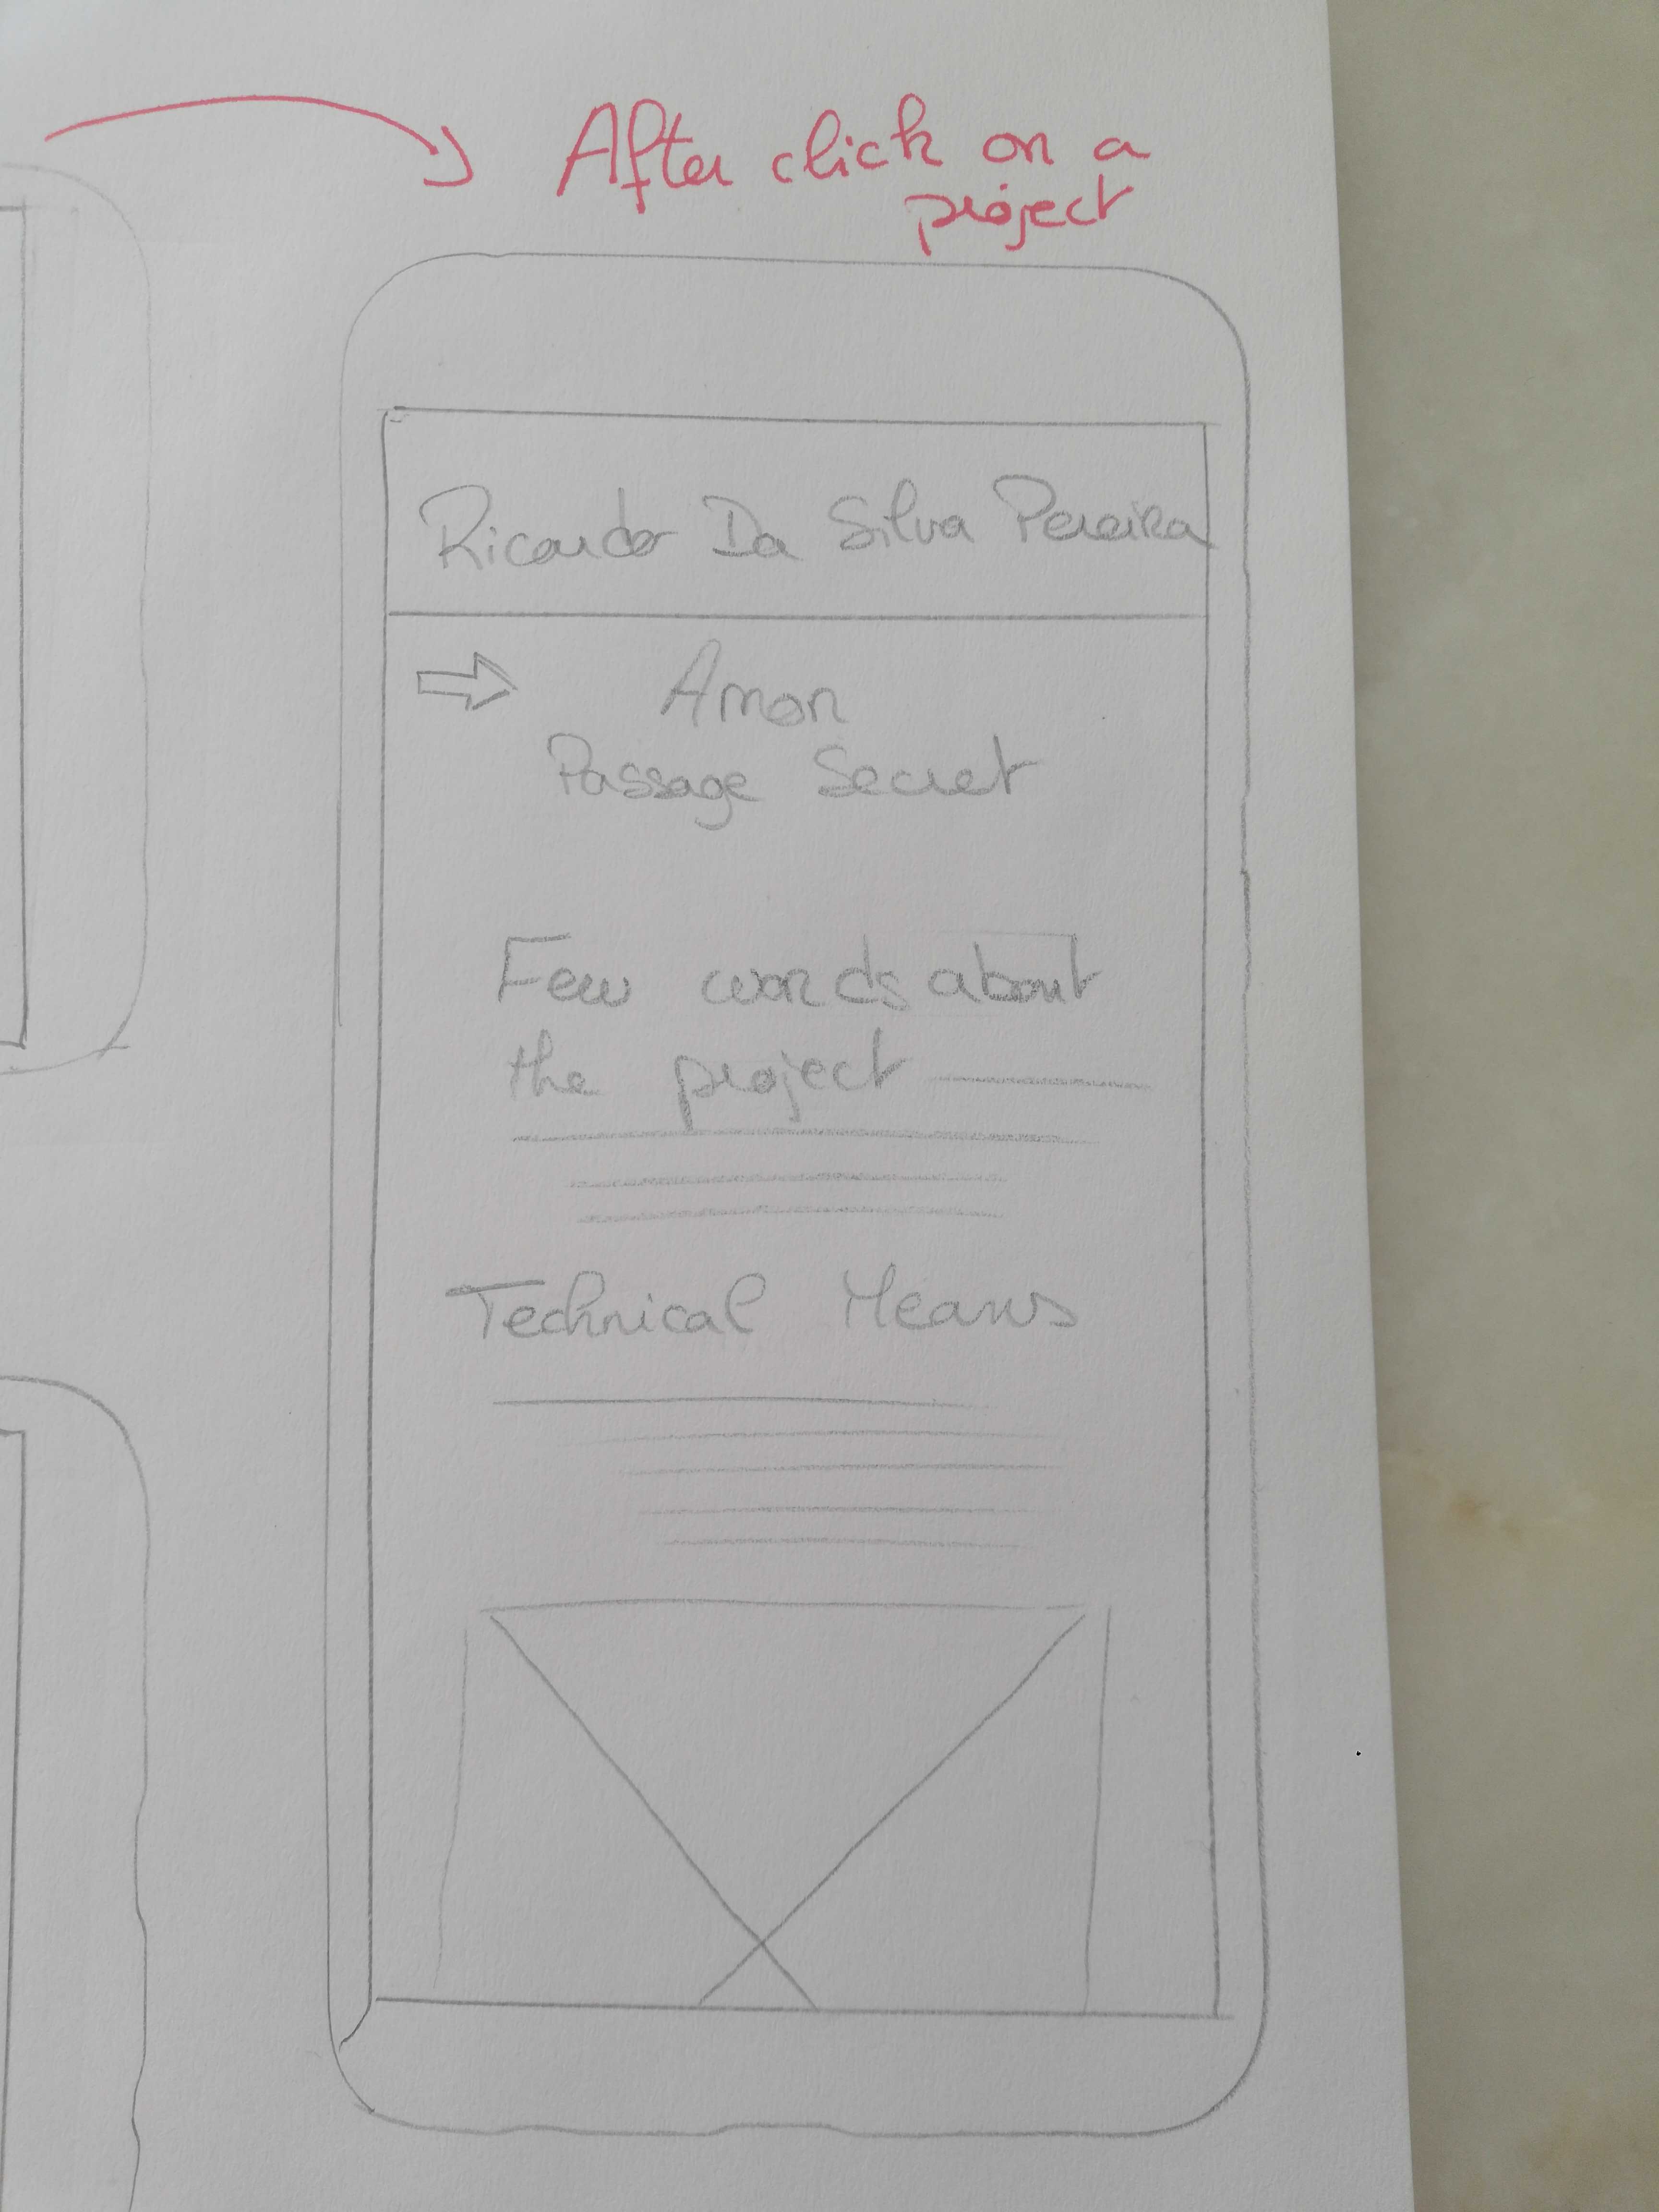 After click on a
project
Ricardo Da Silva Pereira
Amon
Passage Secret
Few words about
the project
Technical Means